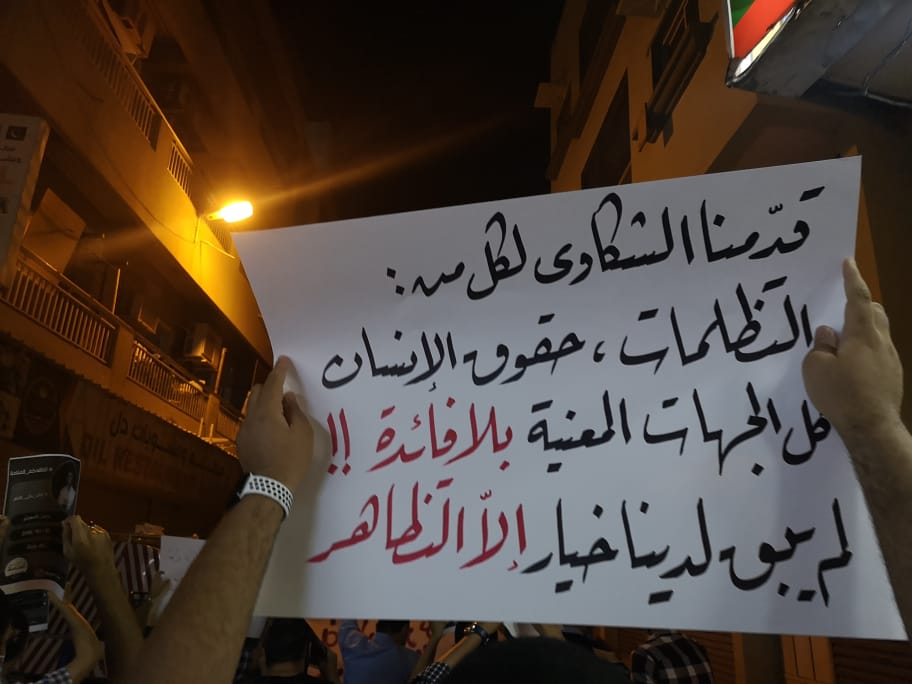 قدّمنا الشكاوى لكل من :
التظلمات ، حقوق الإنسان
كل الجهات المعنية بلا فائدة !!
لم يبق لدينا خيار إلاّ التظاهر